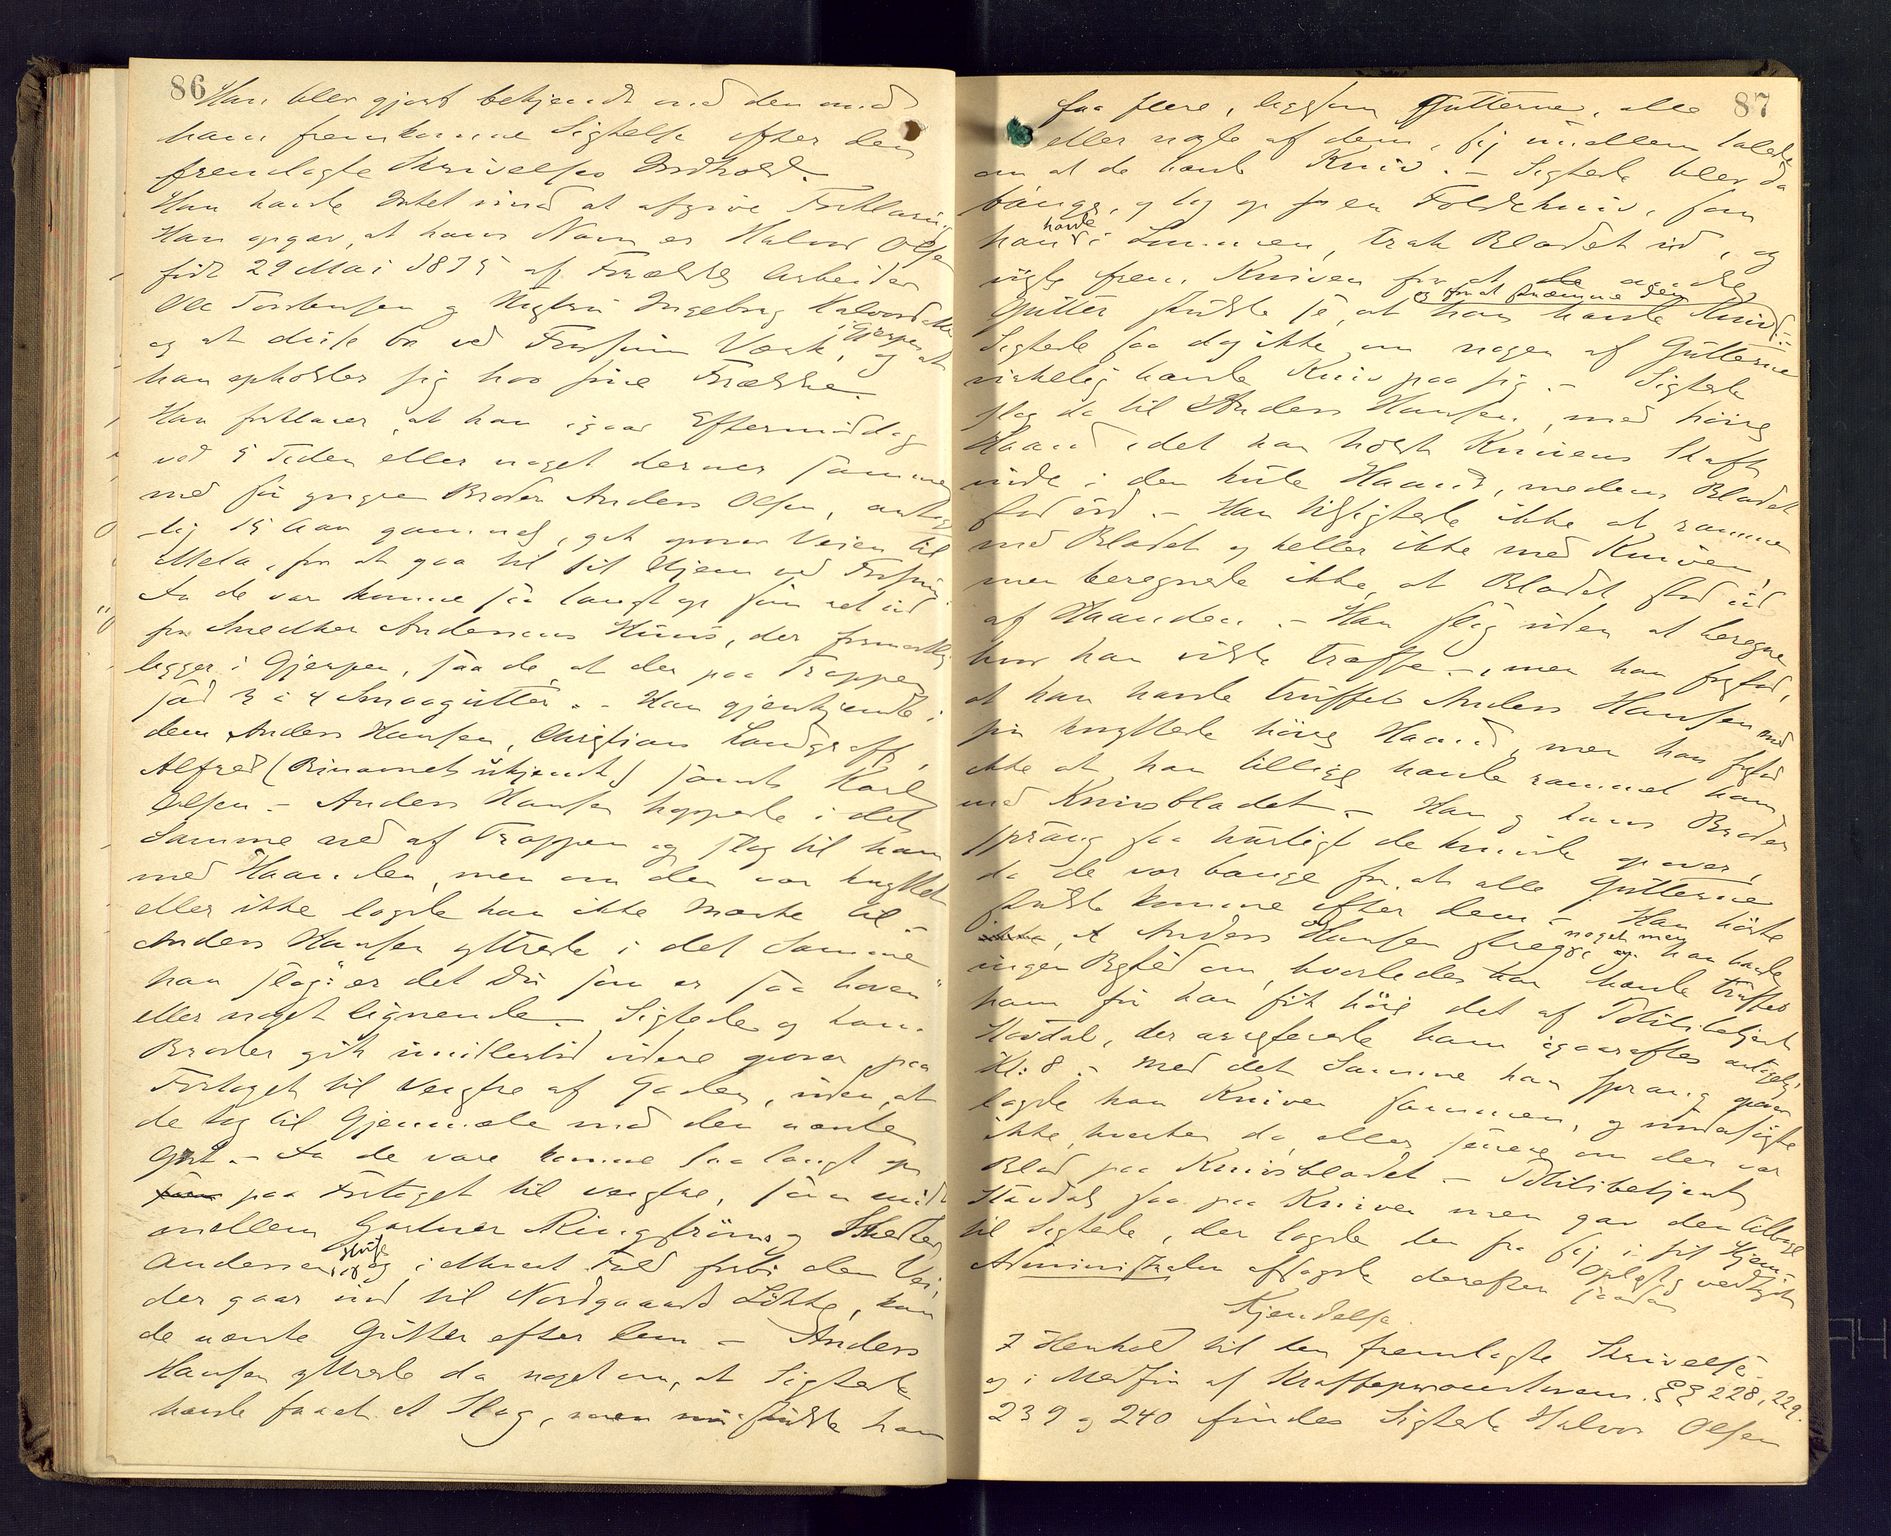 86
Han blev gjort bekjendt med den mod
ham fremkomne Sigtelse efter den
fremlagte Skrivelses Indhold.
Han havde Intet imod at afgive Forklaring
Han opgav, at hans Navn er Halvor Olsen
født 29 Mai 1875 af Forældre Arbeider
Ole Torstensen og Hustru Ingeborg Halvorsdatter
og at disse bo ved Fossum Værk, i Gjerpen og at
han opholder sig hos sine Forældre.
Han forklarer, at han igaar Eftermiddag
ved 5 Tiden eller noget derover sammen
med sin yngre Broder Anders Olsen, antage-
lig 15 Aar gammel, gik opover Veien til
Mela, for at gaa til sit Hjem ved Fossum.
Da de var komne saa langt op som ret ud
for Snedker Andersens Huus, der formentlig
ligger i Gjerpen, saa de, at der paa Trappen
sad 3 à 4 Smaagutter. - Han gjenkjendte i
dem Anders Hansen, Christian Landgraff,
Alfred (Binavnet ukjendt) samt Karl
Olsen. - Anders Hansen hoppede i det
Samme ned af Trappen og slog til ham
med Haanden, men om den var knyttet
eller ikke lagde han ikke Mærke til -
Anders Hansen yttrede i det Samme
han slog: "er det Du som er saa hoven"
eller noget lignende. - Sigtede og hans
Broder gik imidlertid videre opover paa
Fortoget til Venstre af Gaden, uden at
de tog til Gjenmæle mod den nævnte
Gut. - Da de vare komne saa langt op
paa Fortoget til venstre, som midt
mellem Gartner Ringstrøms og Snedker
Andersens Huse og i ethvert Fald forbi den Vei,
der gaar ind til Nordgaards Løkke, kom
de nævnte Gutter efter dem - Anders
Hansen yttrede da noget om, at Sigtede
havde faaet et Slag, men nu skulde han
87
faa flere, ligesom Gutterne, alle
eller nogle af dem, sig imellem talede
om at de havde Kniv. - Sigtede blev da
bange, og tog op en Foldekniv, som
han havde i Lommen, trak Bladet ud, og
viste frem Kniven for at de andre
Gutter skulde se, at han havde Kniv og for at skræmme dem. -
Sigtede saa dog ikke, om nogen af Gutterne
virkelig havde Kniv paa sig. - Sigtede
slog da til Anders Hansen, med høire
Haand idet han holdt Knivens Skaft
inde i den hule Haand, medens Bladet
stod ud. - Han tilsigtede ikke at ramme
med Bladet og heller ikke med Kniven,
men beregnede ikke, at Bladet stod ud
af Haanden. - Han slog uden at beregne
hvor han vilde træffe -, men han forstod,
at han havde truffet Anders Hansen med
sin knyttede høire Haand, men han forstod
ikke at han tillige havde rammet ham
med Knivsbladet. - Han og hans Broder
sprang saa hurtigt de kunde opover,
da de var bange for, at alle Gutterne
skulde komme efter dem - Han hørte
at Anders Hansen skreg noget, men han havde
ingen Besked om, hvorledes han havde truffet
ham før han fik høre det af Politibetjent
Stavdal, der arresterede ham igaaraftes antagelig
Kl: 8. - Med det Samme han sprang opover
lagde han Kniven sammen, og undersøgte
ikke, hverken da, eller senere om der var
Blod paa Knivsbladet - Politibetjent
Stavdal saa paa Kniven men gav den tilbage
til Sigtede, der lagde den fra sig i sit Hjem. -
Administrator afsagde derefter saadan
Kjendelse.
I Henhold til den fremlagte Skrivelse
og i Medfør af Straffeproceslovens §§ 228, 229.
239 og 240 findes Sigtede Halvor Olsen